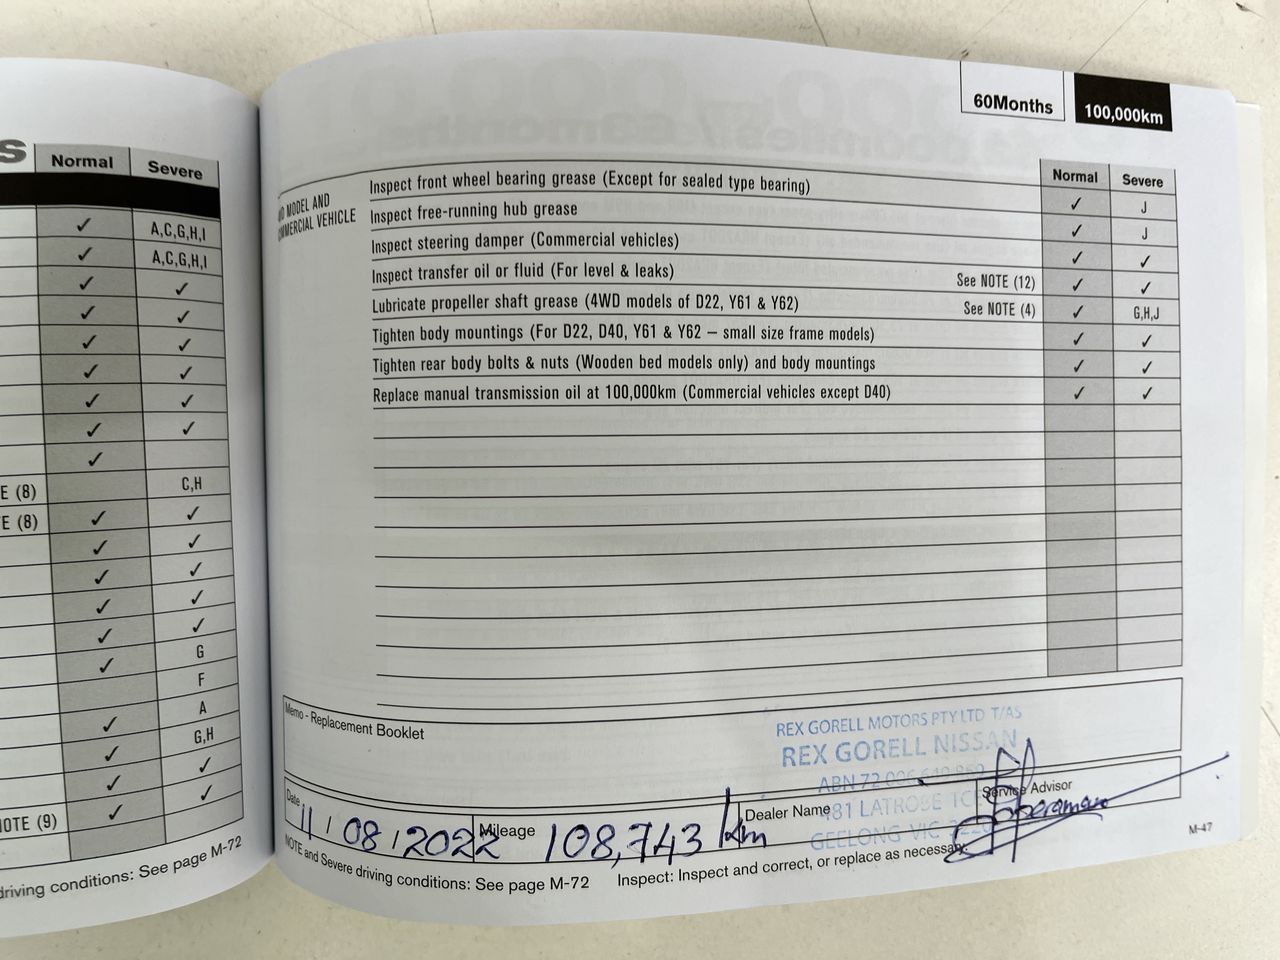 S
Normal Severe
✓ A,C,G,H,I
✓ A,C,G,H,I
✓ ✓
✓ ✓
✓ ✓
✓ ✓
✓ ✓
✓ ✓
✓
E (8) C,H
E (8) ✓ ✓
✓ ✓
✓ ✓
✓ ✓
✓ ✓
✓ G
F
✓ A
✓ G,H
✓ ✓
NOTE (9) ✓ ✓
driving conditions: See page M-72
60Months 100,000km
Normal Severe
MODEL AND
COMMERCIAL VEHICLE
Inspect front wheel bearing grease (Except for sealed type bearing) ✓ J
Inspect free-running hub grease ✓ J
Inspect steering damper (Commercial vehicles) ✓ ✓
Inspect transfer oil or fluid (For level & leaks) See NOTE (12) ✓ ✓
Lubricate propeller shaft grease (4WD models of D22, Y61 & Y62) See NOTE (4) ✓ G,H,J
Tighten body mountings (For D22, D40, Y61 & Y62 – small size frame models) ✓ ✓
Tighten rear body bolts & nuts (Wooden bed models only) and body mountings ✓ ✓
Replace manual transmission oil at 100,000km (Commercial vehicles except D40) ✓ ✓
Memo - Replacement Booklet
REX GORELL MOTORS PTY LTD T/AS
REX GORELL NISSAN
ABN 72 006 640 869
481 LATROBE TCE
GEELONG VIC 3220
Date 11/08/2022 Mileage 108,743 km Dealer Name Service Advisor
NOTE and Severe driving conditions: See page M-72 Inspect: Inspect and correct, or replace as necessary.
M-47